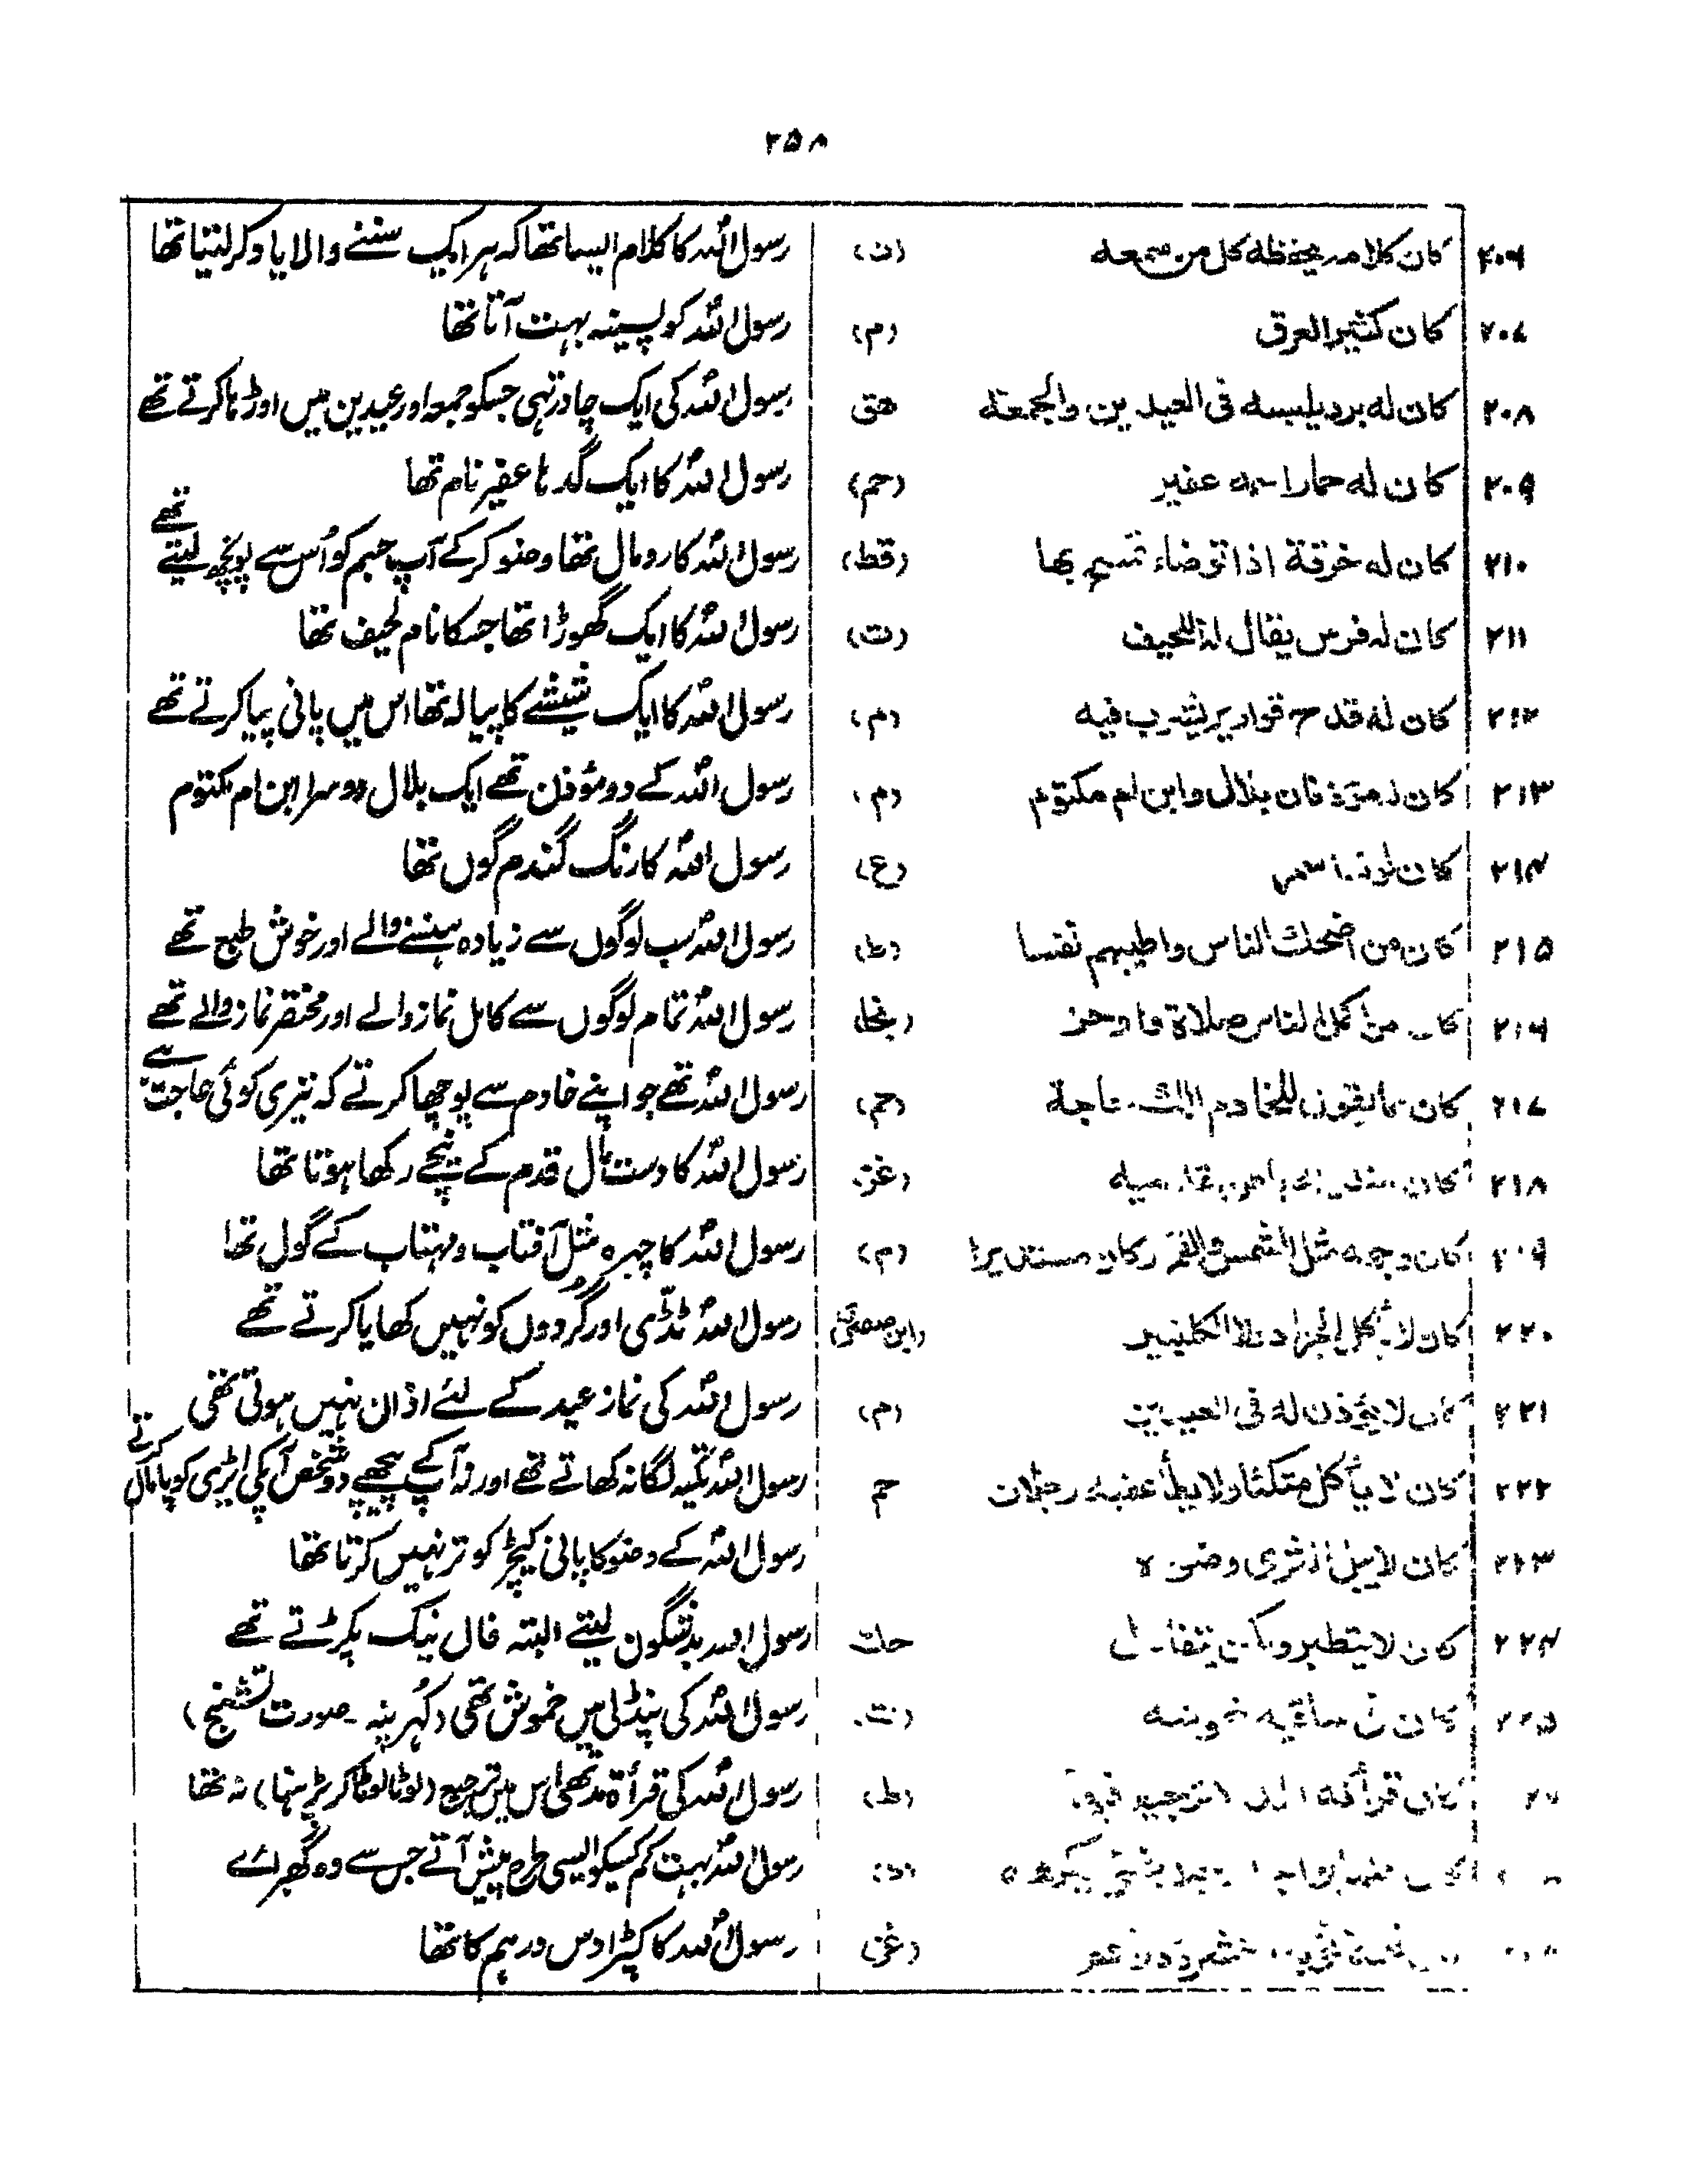 ۲۵۸
۲۰۶ کان کلامہ یحفظہ کل من سمعہ (ن) رسول اللہؐ کا کلام ایسا تھا کہ ہر ایک سننے والا یاد کر لیتا تھا
۲۰۷ کان کثیر العرق (م) رسول اللہؐ کو پسینہ بہت آتا تھا
۲۰۸ کان لہ برد یلبسہ فی العیدین والجمعة ھق رسول اللہؐ کی ایک چادر تہی جسکو جمعہ اور عیدین میں اوڑہا کرتے تھے
۲۰۹ کان لہ حمار اسمہ عفیر (حم) رسول اللہؐ کا ایک گدہا عفیر نام تھا
۲۱۰ کان لہ خرقة اذا توضاء تمسح بھا (قط) رسول اللہؐ کا رومال تھا وضو کر کے آپ جسم کو اُس سے پونچھ لیتے تھے
۲۱۱ کان لہ فرس یقال لہ اللحیف (ت) رسول اللہؐ کا ایک گھوڑا تھا جسکا نام لحیف تھا
۲۱۲ کان لہ قدح قواریر یشرب فیہ (م) رسول اللہؐ کا ایک شیشے کا پیالہ تھا اس میں پانی پیا کرتے تھے
۲۱۳ کان لہ مؤذنان بلال وابن ام مکتوم (م) رسول اللہؐ کے دو مؤذن تھے ایک بلال دوسرا ابن ام مکتوم
۲۱۴ کان لونہ اسمر (ع) رسول اللہؐ کا رنگ گندم گوں تھا
۲۱۵ کان من اضحک الناس واطیبہم نفسا (ط) رسول اللہؐ سب لوگوں سے زیادہ ہنسنے والے اور خوش طبع تھے
۲۱۶ من اکمل الناس صلاة رسول اللہؐ تمام لوگوں سے کامل نماز والے اور مختصر نماز والے تھے
۲۱۷ کان مما یقول للخادم الک حاجة (حم) رسول اللہؐ تھے جو اپنے خادم سے پوچھا کرتے کہ تیری کوئی حاجت ہے
۲۱۸ کان (غز) رسول اللہؐ کا دستمال قدم کے نیچے رکھا ہوتا تھا
۲۱۹ کان وجہہ مثل الشمس والقمر وکان مستدیرا (م) رسول اللہؐ کا چہرہ مثل آفتاب و مہتاب کے گول تھا
۲۲۰ کان لا یأکل الجراد ولا الکلیتین رسول اللہؐ ٹڈّی اور گردوں کو نہیں کھایا کرتے تھے
۲۲۱ کان لا یؤذن لہ فی العیدین (م) رسول اللہؐ کی نماز عید کے لئے اذان نہیں ہوتی تھی
۲۲۲ کان لا یأکل متکئا ولا یطأ عقبہ رجلان حم رسول اللہؐ تکیہ لگا نہ کھاتے تھے اور نہ آپ کے پیچھے دو شخص آپکی ایڑہی کو پامال کرتے
۲۲۳ کان لا یبل الثری وضوہ رسول اللہؐ کے وضو کا پانی کیچڑ کو تر نہیں کرتا تھا
۲۲۴ کان لا یتطیر ولکن یتفأل رسول اللہ بدشگون لیتے البتہ فال نیک پکڑتے تھے
۲۲۵ کان فی ساقیہ خموشہ (ت) رسول اللہؐ کی پنڈلی میں خموش تھی
کان (ط) رسول اللہؐ کی قرأة مد تھی اس میں ترجیع (لوٹا لوٹا کر پڑہنا) نہ تھا
رسول اللہؐ بہت کم کسیکو ایسی طرح پیش آتے جس سے وہ گھبرائے
(غز) رسول اللہؐ کا کپڑا دس درہم کا تھا